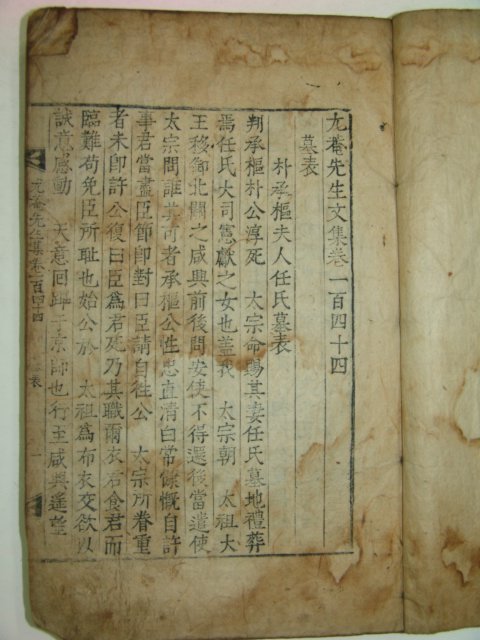 尤菴先生文集卷一百四十四
墓表
朴承樞夫人任氏墓表
判承樞朴公淳死 太宗命賜其妻任氏墓地禮葬
焉任氏大司憲獻之女也盖我 太宗朝 太祖大
王移御北關之咸興前後問安使不得還後當遣使
太宗問誰其可者承樞公性忠直清白常慷慨自許
事君當盡臣節即對曰臣請自往公 太宗所眷重
者未即許公復曰臣爲君死乃其職爾衣君食君而
臨難苟免臣所恥也始公於 太祖爲布衣交欲以
誠意感動 天意回蹕于京師也行至咸興遙望
尤菴先生集卷一百四十四 墓表 一